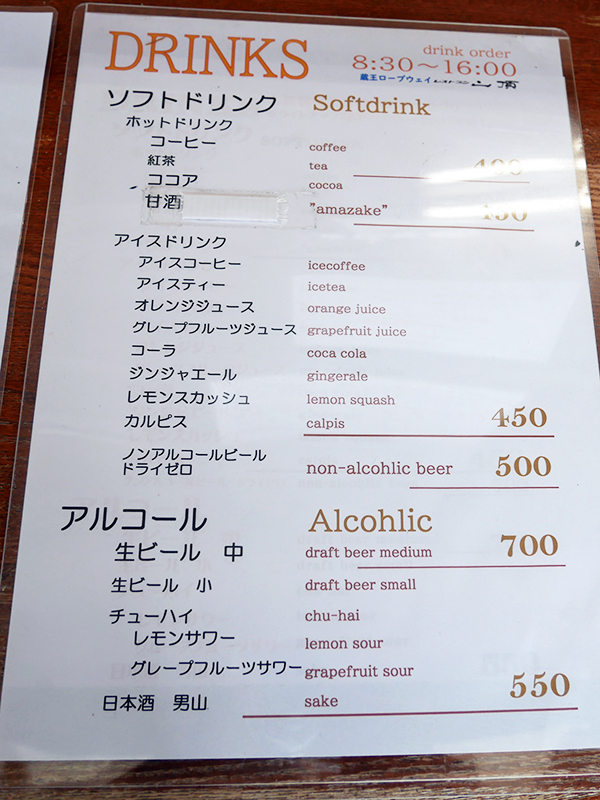 DRINKS
drink order
8:30～16:00
蔵王ロープウェイ 山頂
ソフトドリンク Softdrink
ホットドリンク
コーヒー coffee
紅茶 tea 400
ココア cocoa
甘酒 "amazake" 450
アイスドリンク
アイスコーヒー icecoffee
アイスティー icetea
オレンジジュース orange juice
グレープフルーツジュース grapefruit juice
コーラ coca cola
ジンジャエール gingerale
レモンスカッシュ lemon squash
カルピス calpis 450
ノンアルコールビール
ドライゼロ non-alcohlic beer 500
アルコール Alcohlic
生ビール 中 draft beer medium 700
生ビール 小 draft beer small
チューハイ chu-hai
レモンサワー lemon sour
グレープフルーツサワー grapefruit sour
日本酒 男山 sake 550